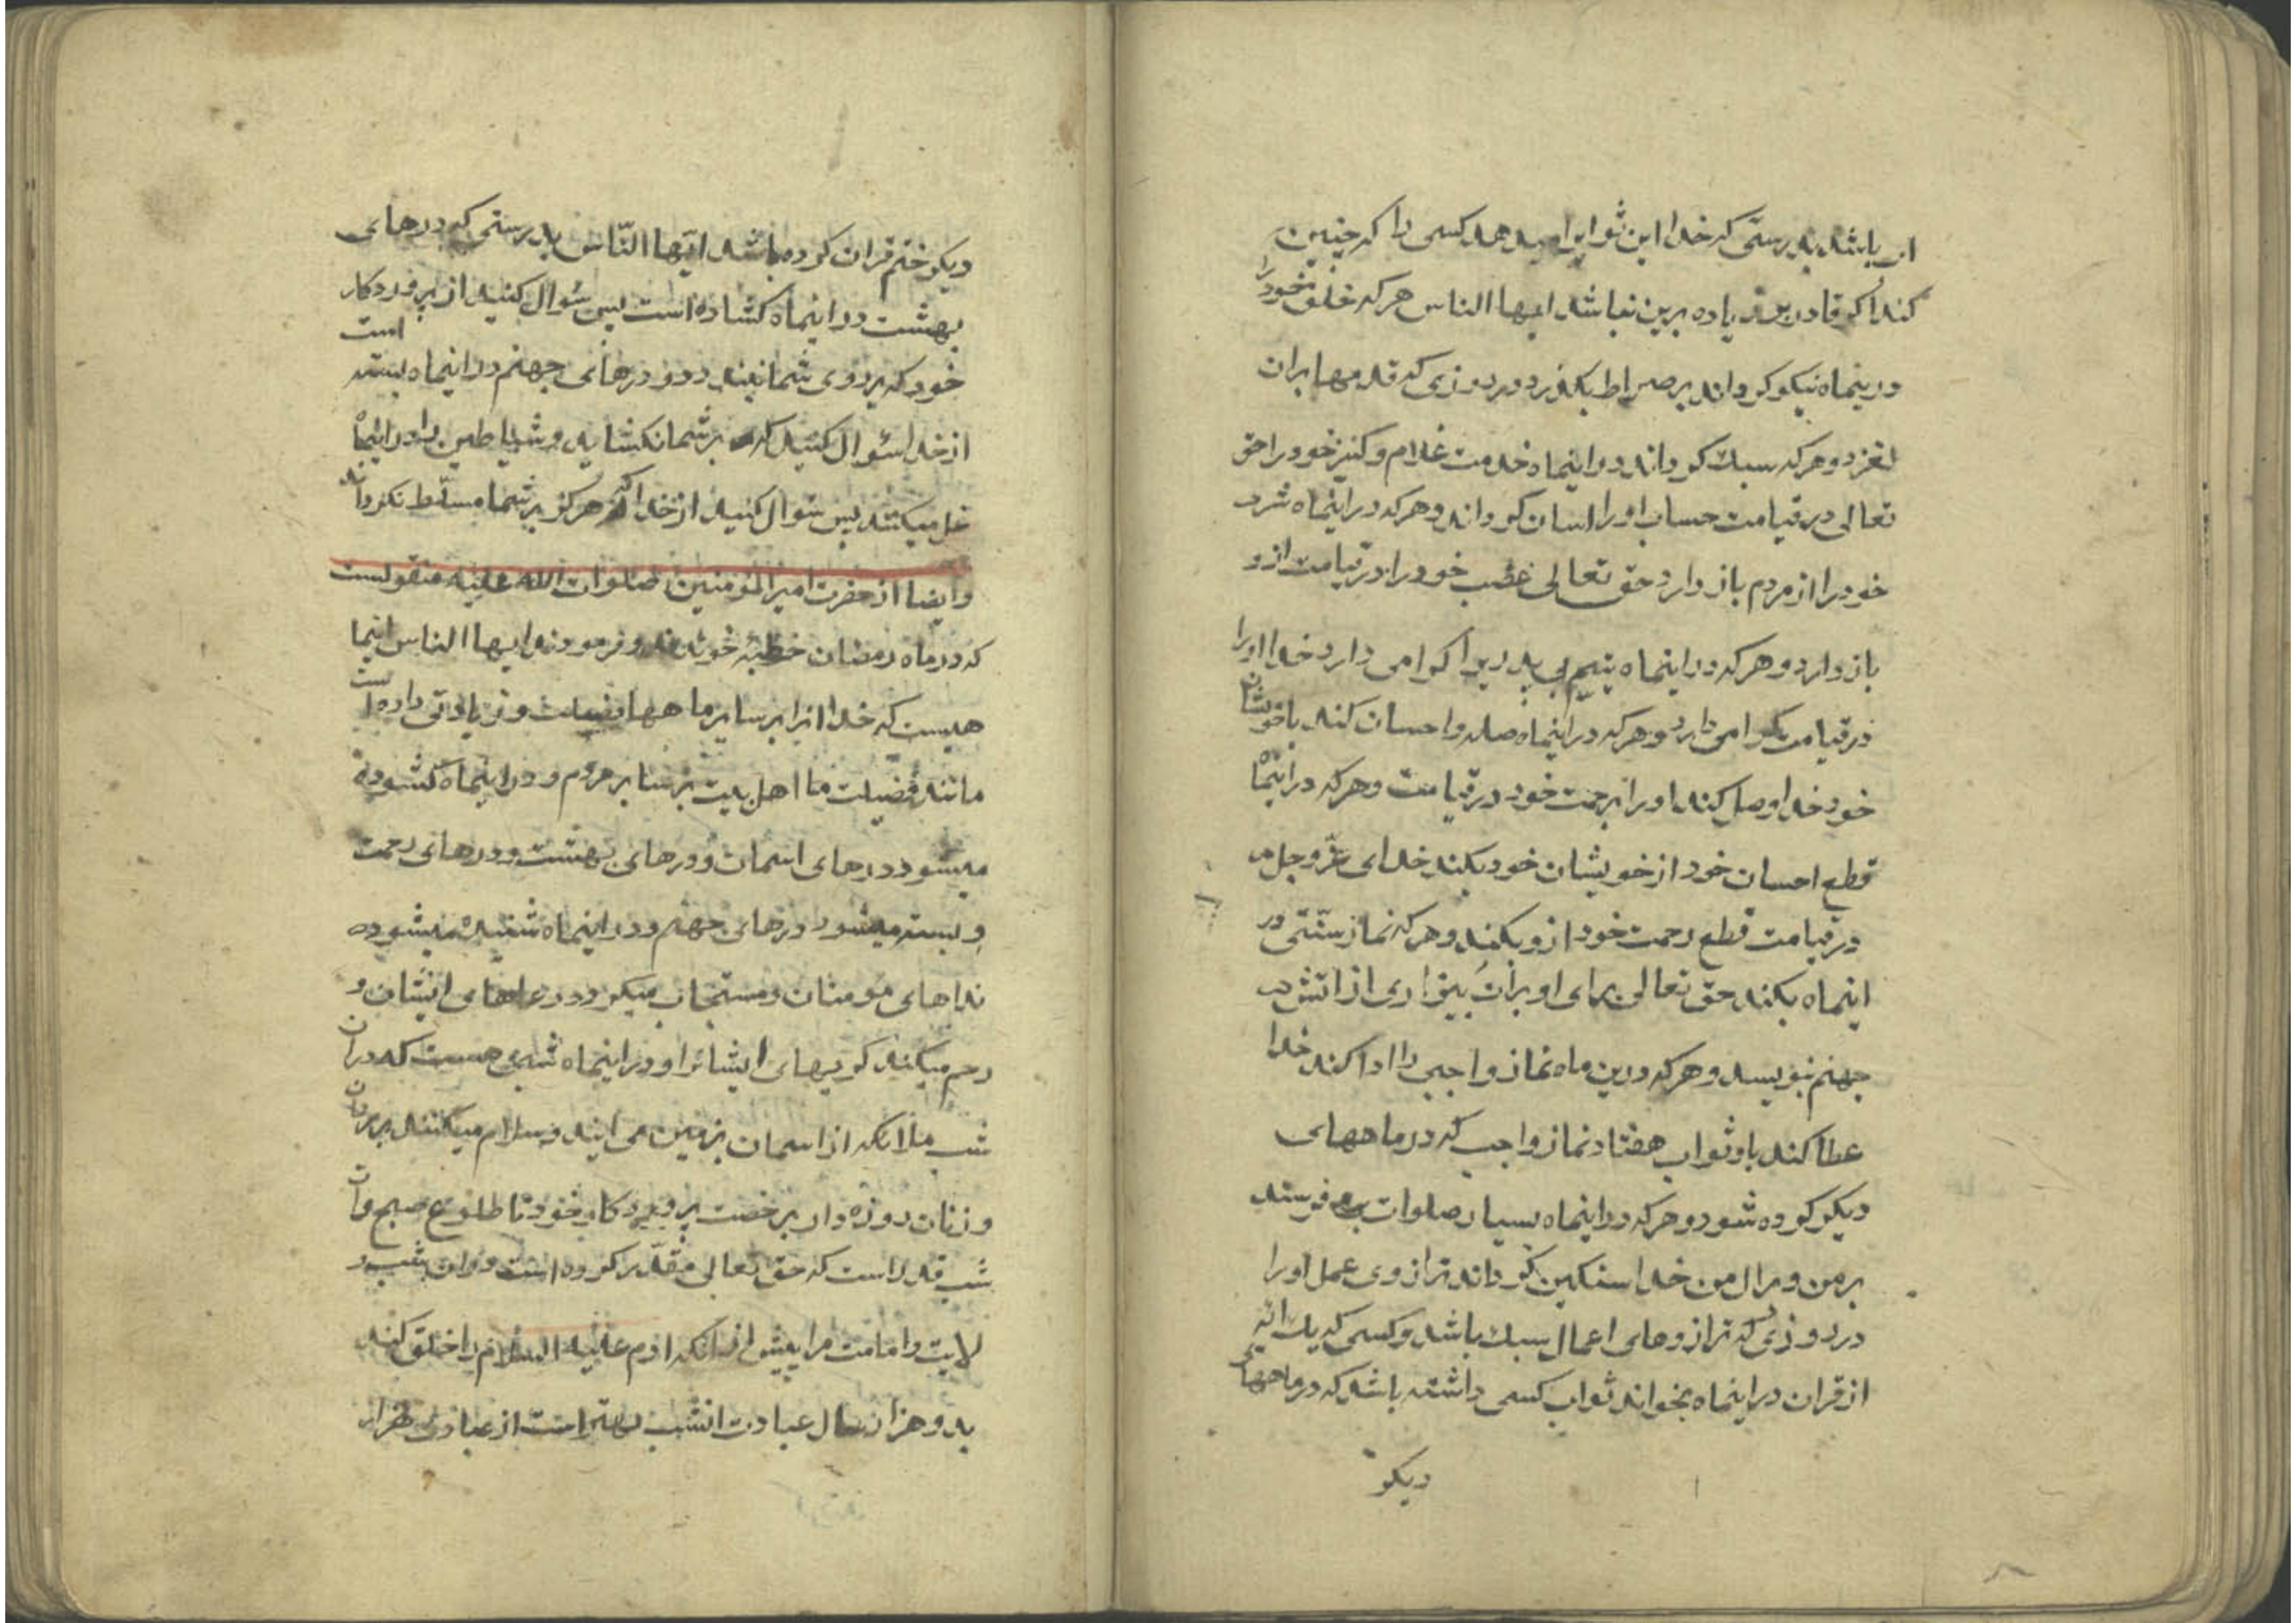 اب باشد بدرستی که خدا این ثوابرا میدهد کسی را که چنین
کند اکر قادر بر زیاده برین نباشد ایها الناس هر که خلق خود را
درینماه نیکو کرداند بر صراط بکذرد در روزی که قدمها بران
لغزد و هر که سبک کرداند در اینماه خدمت غلام و کنیز خود را حق
تعالی در قیامت حساب او را اسان کرداند و هر که در اینماه شر
خود را از مردم باز دارد حق تعالی غضب خود را در قیامت از و
باز دارد و هر که در اینماه یتیم بی پدریرا کرامی دارد خدا او را
در قیامت کرامی دارد و هر که در اینماه صله و احسان کند با خویشان
خود خدا وصل کند او را برحمت خود در قیامت و هر که در اینماه
قطع احسان خود از خویشان خود بکند خدای عزّ و جل
در قیامت قطع رحمت خود از و بکند و هر که نماز سنّتی در
اینماه بکند حق تعالی برای او برات بیزاری از اتش
جهنم بنویسد و هر که درین ماه نماز واجبی را ادا کند خدا
عطا کند باو ثواب هفتاد نماز واجب که در ماههای
دیکر کرده شود و هر که در اینماه بسیار صلوات فرستد
بر من و برال من خدا سنکین کرداند ترازوی عمل او را
در روزی که ترازوهای اعمال سبک باشد و کسی که یک ایه
از قران در اینماه بخواند ثواب کسی داشته باشد که در ماههای
دیکر
دیکر ختم قران کرده باشد ایّها النّاس بدرستی که درهای
بهشت در اینماه کشاده است پس سؤال کنید از پروردکار
خود که بر روی شما نبندد و درهای جهنم در اینماه بسته است
از خدا سؤال کنید که بر شما نکشاید و شیاطین را در اینماه
غل میکنند پس سؤال کنید از خدا که هرکز بر شما مسلّط نکرداند
و ایضا از حضرت امیر المؤمنین صلوات الله علیه منقولست
که در ماه رمضان خطبه خواندند و فرمودند ایها الناس اینما
هیست که خدا انرا بر سایر ماهها فضیلت و زیادتی داده است
مانند فضیلت ما اهل بیت بر سایر مردم و در اینماه کشوده
میشود درهای اسمان و درهای بهشت و درهای رحمت
و بسته میشود درهای جهنم و در اینماه شنیده میشود
نداهای مومنان و مستجاب میکردد دعاهای ایشان و
رحم میکند کریهای ایشانرا و در اینماه شبی هست که دران
شب ملائکه از اسمان بزمین می ایند و سلام میکنند بر مردان
و زنان روزه دار برخصت پروردکار خود تا طلوع صبح و ان
شب قدر است که حق تعالی مقدّر کرده است در ان شب و
لایت و امامت مرا پیش از انکه ادم علیه السلام را خلق کند
بدو هزار سال عبادت انشب بهتر است از عبادت هزار